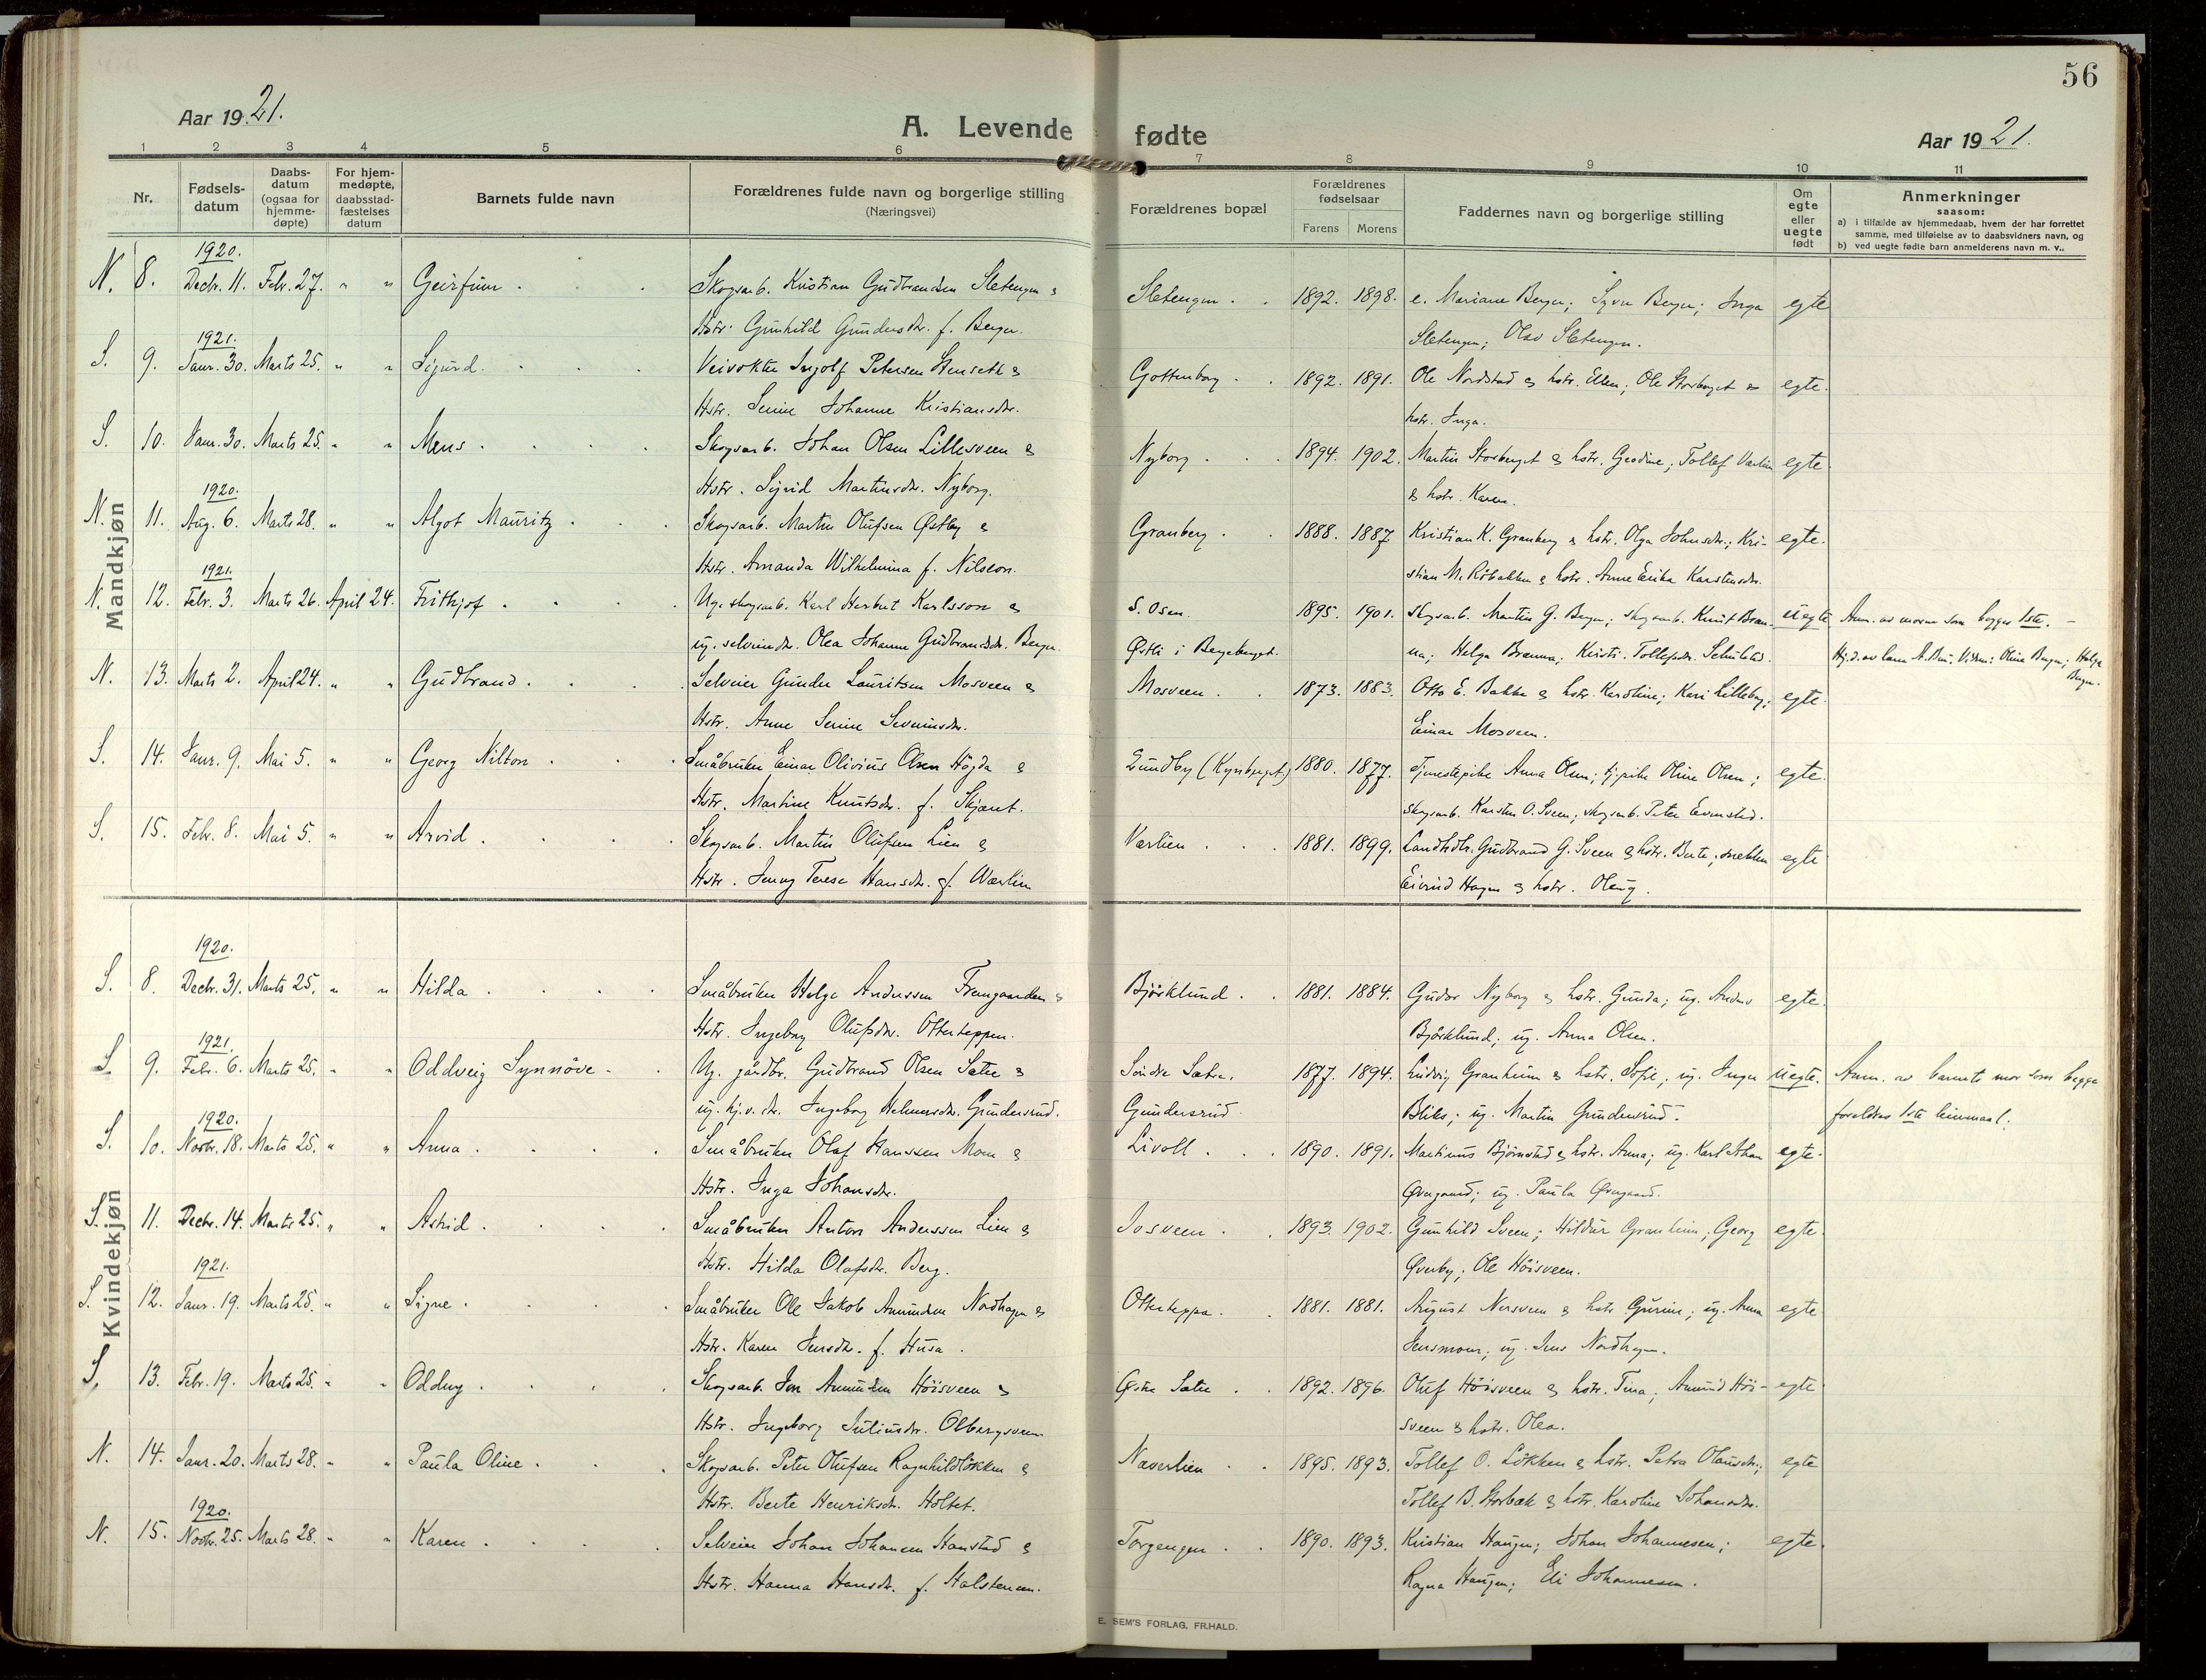 56
Aar 1921.
A. Levende fødte
Aar 1921.
1 2 3 4 5 6 7 8 9 10 11
Nr.
Fødsels-
datum
Daabs-
datum
(ogsaa for
hjemme-
døpte)
For hjem-
medøpte,
daabsstad-
fæstelses
datum
Barnets fulde navn
Forældrenes fulde navn og borgerlige stilling
(Næringsvei)
Forældrenes bopæl
Forældrenes
fødselsaar
Farens Morens
Faddernes navn og borgerlige stilling
Om
egte
eller
uegte
født
Anmerkninger
saasom:
a) i tilfælde av hjemmedaab, hvem der har forrettet
samme, med tilføielse av to daabsvidners navn, og
b) ved uegte fødte barn anmelderens navn m. v..
Mandkjøn
1920.
N. 8. Decbr. 11. Febr. 27. " " Geirfinn Skogsarb. Kristian Gudbrandsen Sletengen & Sletengen 1892. 1898. e. Mariane Bergen; Syver Bergen; Inga egte
Hstr. Gunhild Gundersdtr. f. Bergen. Sletengen; Olav Sletengen.
1921.
S. 9. Janr. 30. Marts 25. " " Sigurd. Veivokter Ingolf Petersen Stenseth & Gottenborg 1892. 1891. Ole Nordstad & hstr. Ellen; Ole Storberget & egte.
Hstr. Serine Johanne Kristiansdtr. hstr. Inga.
S. 10. Janr. 30. Marts 25. " " Mens Skogsarb. Johan Olsen Lillesveen & Nyborg 1894. 1902. Martin Storberget & hstr. Geodine; Tollef Værlien egte
Hstr. Sigrid Martinsdtr. Nyborg. & hstr. Karen.
1920.
N. 11. Aug. 6. Marts 28. " " Algot Mauritz Skogsarb. Martin Olufsen Østby & Granberg 1888. 1887 Kristian K. Granberg & hstr. Olga Johnsdtr.; Kri- egte.
Hstr. Amanda Wilhelmina f. Nilsson. stian M. Råbakken & hstr. Anne Erika Karstensdtr.
1921.
N. 12. Febr. 3. Marts 26. April 24. Frithjof Ug. skogsarb. Karl Herbert Karlsson & S. Osen. 1895. 1901. Skogsarb. Martin G. Bergen; skogsarb. Knut Bræn- uegte Anm. av moren som begges 1ste.
ug. selveierdtr. Olea Johanne Gudbrandsdtr. Bergen. Østli i Bergeberget. na; Helga Brænna; Kristi Tollefsdtr. Schulstad. Hj.d. av Vidner: Oline Bergen; Helga
Bergen.
N. 13. Marts 2. April 24. " " Gudbrand Selveier Gunder Lauritsen Mosveen & Mosveen 1873. 1883. Otto E. Bakken & hstr. Karoline; Kari Lilleberg; egte.
Hstr. Anne Serine Severinsdtr. Einar Mosveen.
S. 14. Janr. 9. Mai 5. " " Georg Nilton Småbruker Einar Olivius Olsen Högda & Lundby (Kynberget) 1880. 1877. Tjenestepike Anna Olsen; tj.pike Oline Olsen; egte.
Hstr. Martine Knutsdtr. f. Skjæret. skogsarb. Karsten O. Sveen; skogsarb. Peter Evenstad.
S. 15. Febr. 8. Mai 5. " " Arvid Skogsarb. Martin Olufsen Lien & Værlien 1881. 1899. Landhdlr. Gudbrand G. Sveen & hstr. Berte; snekker egte
Hstr. Jenny Terese Hansdtr. f. Værlien Eivind Hagen & hstr. Oleug.
Kvindekjøn
1920.
S. 8. Decbr. 31. Marts 25. " " Hilda Småbruker Helge Anderssen Fremgaarden & Björklund 1881. 1884. Gudor Nyborg & hstr. Gunda; ug. Anders egte.
Hstr. Ingeborg Olufsdtr. Otterteppen. Björklund; ug. Anna Olsen.
1921.
S. 9. Febr. 6. Marts 25. " " Oddveig Synnöve Ug. gårdbr. Gudbrand Olsen Sætre & Söndre Sætre. 1877. 1894. Ludvig Granheim & hstr. Sofie; ug. Inger uegte. Anm. av barnets mor som begge
ug. hj.v. dtr. Ingeborg Helmersdtr. Gundersrud. Gundersrud Bliks; ug. Martin Gundersrud. foreldres 1ste leiermaal.
1920.
S. 10. Novbr. 18. Marts 25. " " Anna Småbruker Olaf Hanssen Moen & Livoll 1890. 1891. Martinus Björnstad & hstr. Anna; ug. Karl Johan egte.
Hstr. Inga Johansdtr. Øvergaard; ug. Paula Øvergaard.
S. 11. Decbr. 14. Marts 25. " " Astrid Småbruker Anton Anderssen Lien & Josveen 1893. 1902. Gunhild Sveen; Hildur Granheim, Georg egte.
Hstr. Hilda Olafsdtr. Berg. Øverby; Ole Höisveen.
1921.
S. 12. Janr. 19. Marts 25. " " Signe Småbruker Ole Jakob Amundsen Nordhagen & Otterteppa. 1881. 1881. August Nersveen & hstr Gurine; ug. Anna egte
Hstr. Karen Jensdtr. f. Husa. Jensmoen; ug. Jens Nordhagen.
S. 13. Febr. 19. Marts 25. " " Oddny Skogsarb. Jon Amundsen Höisveen & Østre Sætre 1892. 1896. Oluf Höisveen & hstr. Tina; Amund Höi- egte
Hstr. Ingeborg Juliusdtr. Olbergsveen sveen & hstr. Olea.
N. 14. Janr. 20. Marts 28. " " Paula Oline Skogsarb. Peter Olufsen Ragnhildlökken & Næverlien 1895. 1893. Tollef O. Lökken & hstr. Petra Olausdtr.; egte
Hstr. Berte Henriksdtr. Holtet. Tollef B. Storbæk & hstr. Karoline Johansdtr.
1920.
N. 15. Novbr. 25. Marts 28. " " Karen Selveier Johan Johansen Stanstad & Torgengen 1890. 1893. Kristian Haugen; Johan Johannesen; egte.
Hstr. Hanna Hansdtr. f. Halsteinen. Ragna Haugen; Eli Johannesen.
E. SEM'S FORLAG, FR.HALD.